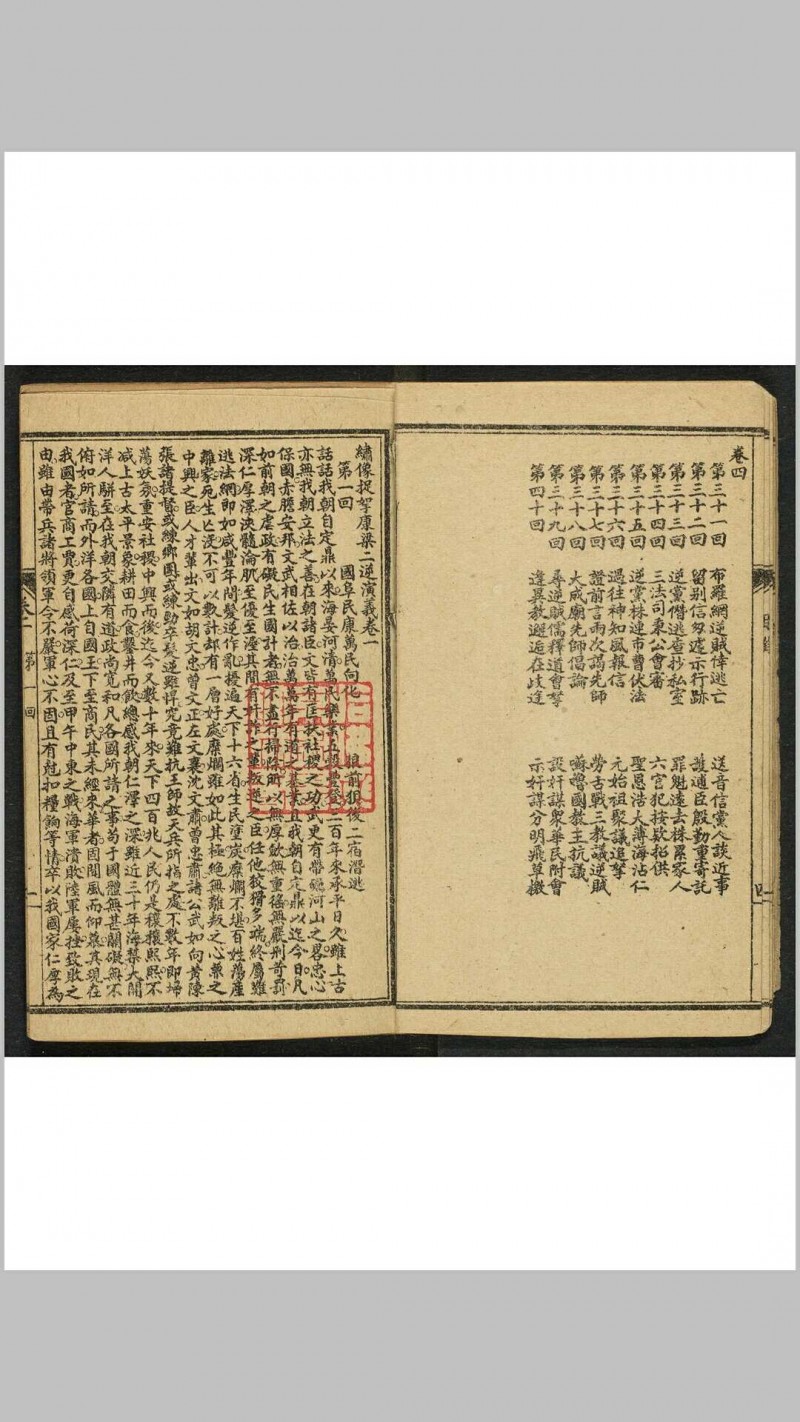 卷四
第三十一回 布羅網逆賊倖逃亡 送音信黨人談近事
第三十二回 留別信匆遽示行跡 護逋臣殷勤重寄託
第三十三回 逆黨僭逃查抄私室 罪魁遠去株累家人
第三十四回 三法司秉公會審 六官犯按欵招供
第三十五回 逆黨林連市曹伏法 聖恩浩大薄海沾仁
第三十六回 遇往神知風報信 元始祖聚議追拏
第三十七回 證前言兩次謁先師 勞古戰三教議逆賊
第三十八回 大成廟先師倡論 蘇嚕國教主抗議
第三十九回 尋逆賊儒釋道會拏 設奸謀眾華民附會
第四十回 逢異教邂逅在歧途 示奸謀分明飛草檄
繡像捉拏康梁二逆演義卷一
第一回 國阜民康萬民向化 狼前狽後二宿潛逃
話話我朝自定鼎以來海晏河清萬民樂業五穀豐登二百年來承平日久雖上古
亦無我朝立法之善在朝諸臣文皆有匡扶社稷之功武更有帶礪河山之畧忠心
保國赤膽安邦文武相佐以治治萬萬年有道之基業且我朝自定鼎以迄今日凡
如前朝之虐政有礙民生國計者無不盡行掃除所以無厚歛無重徭無嚴刑苛罰
深仁厚澤浹髓淪肌至優至渥其間有奸詐之輩叛逆之臣任他狡猾多端終屬難
逃法網即如咸豐年間髮逆作亂擾遍天下十六省生民塗炭糜爛不堪百姓蕩產
離家宛生亡沒不可以數計却有一層好處糜爛雖如此其極絕無離叛之心兼之
中興之臣人才輩出文如胡文忠曾文正左文襄沈文肅曾忠肅諸公武如向黃陳
張諸提督或練鄉團或練勁卒髮逆雖悍究竟難抗王師故天兵所指之處不數年即埽
蕩妖氛重安社稷中興而後迄今又數十年來天下四百兆人民仍是穰穰熙熙不
减上古太平景象耕田而食鑿井而飲總感我朝仁澤之深雖近三十年海禁大開
洋人騈至在我朝交隣有道政尚寬和凡各國所請之事茍于國體無甚關礙無不
俯如所請而外洋各國上自國王下至商民其未經來華者固聞風而仰慕其現在
我國者官商工賈更自感荷深仁及至甲午中東之戰海軍潰敗陸軍屢挫致敗之
由雖由帶兵諸將領軍令不嚴軍心不固且有尅扣糧餉等情卒以我國家仁厚為
第一回